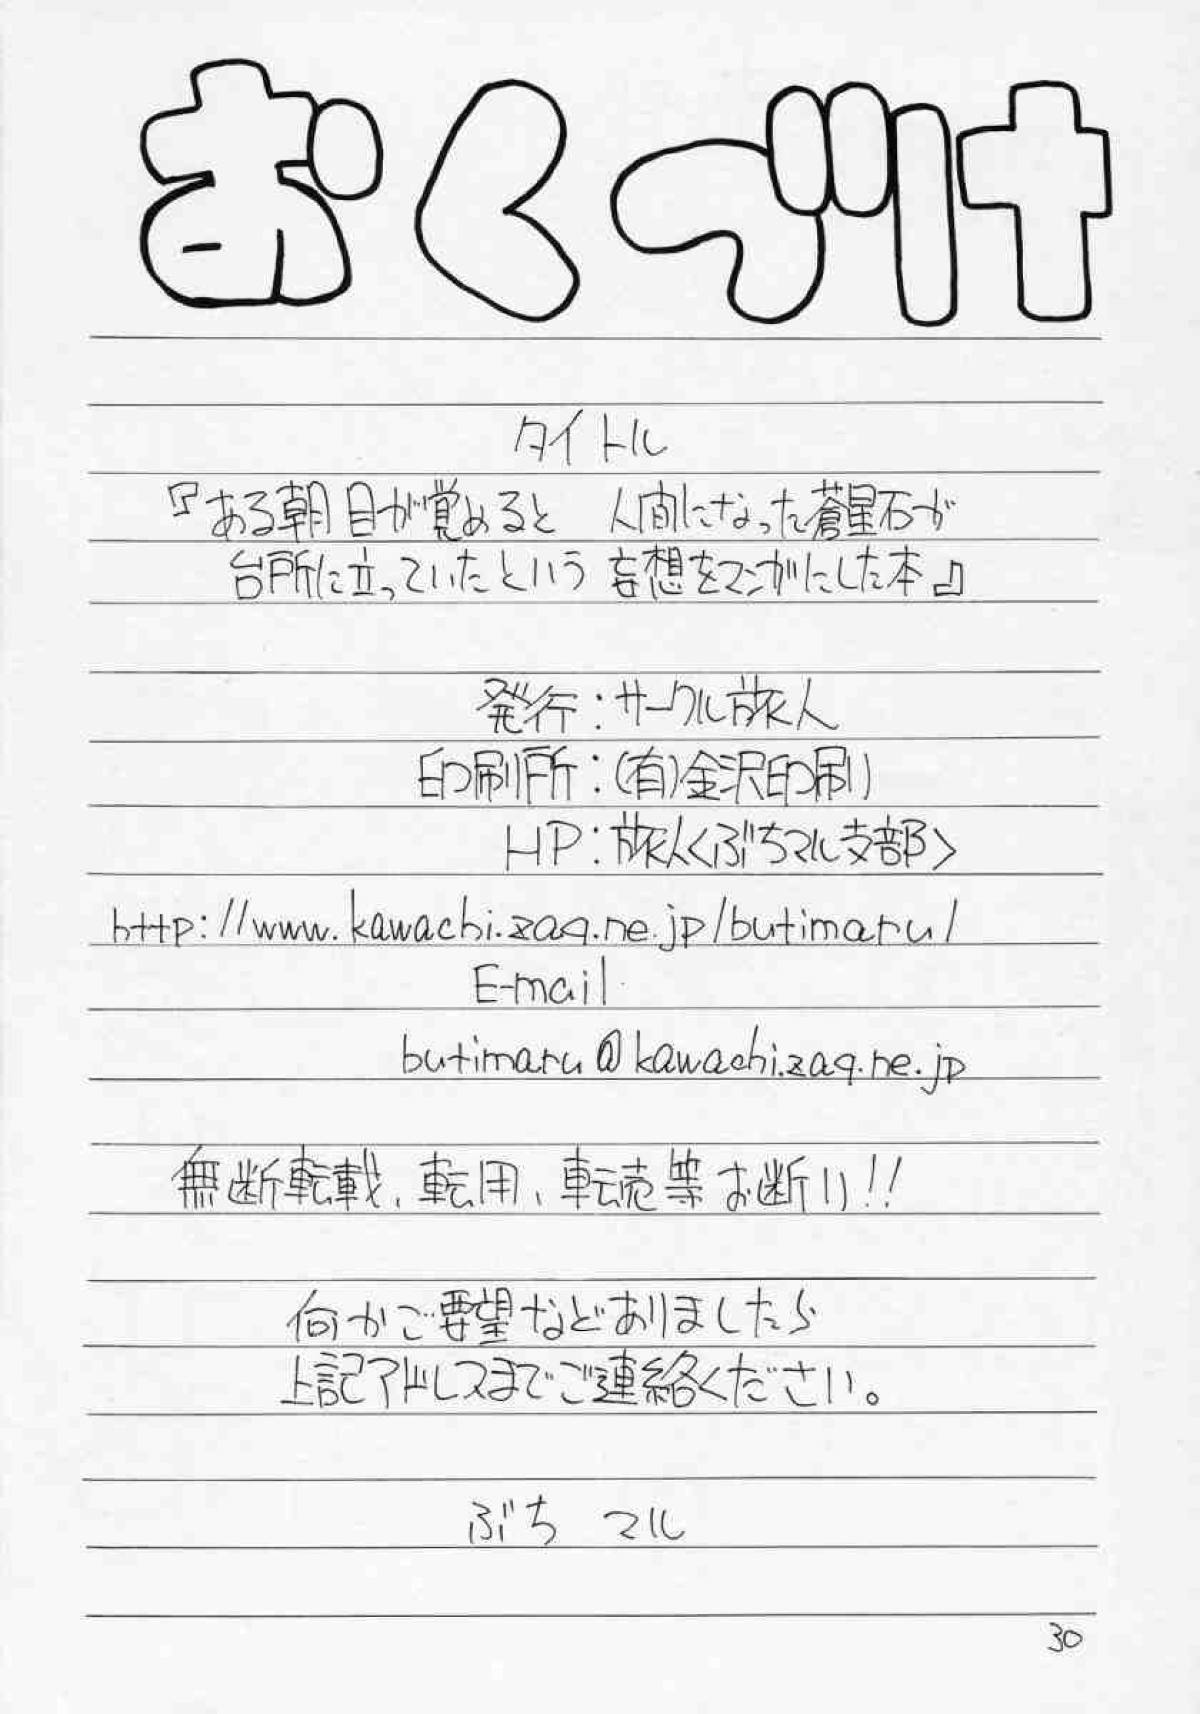 おくづけ
タイトル
『ある朝目が覚めると 人間になった蒼星石が
台所に立っていたという 妄想をマンガにした本』
発行：サークル旅人
印刷所：(有)金沢印刷
HP：旅人<ぶちマル支部>
http://www.kawachi.zaq.ne.jp/butimaru/
E-mail
butimaru@kawachi.zaq.ne.jp
無断転載、転用、転売等お断り!!
何かご要望などありましたら
上記アドレスまでご連絡ください。
ぶち マル
30